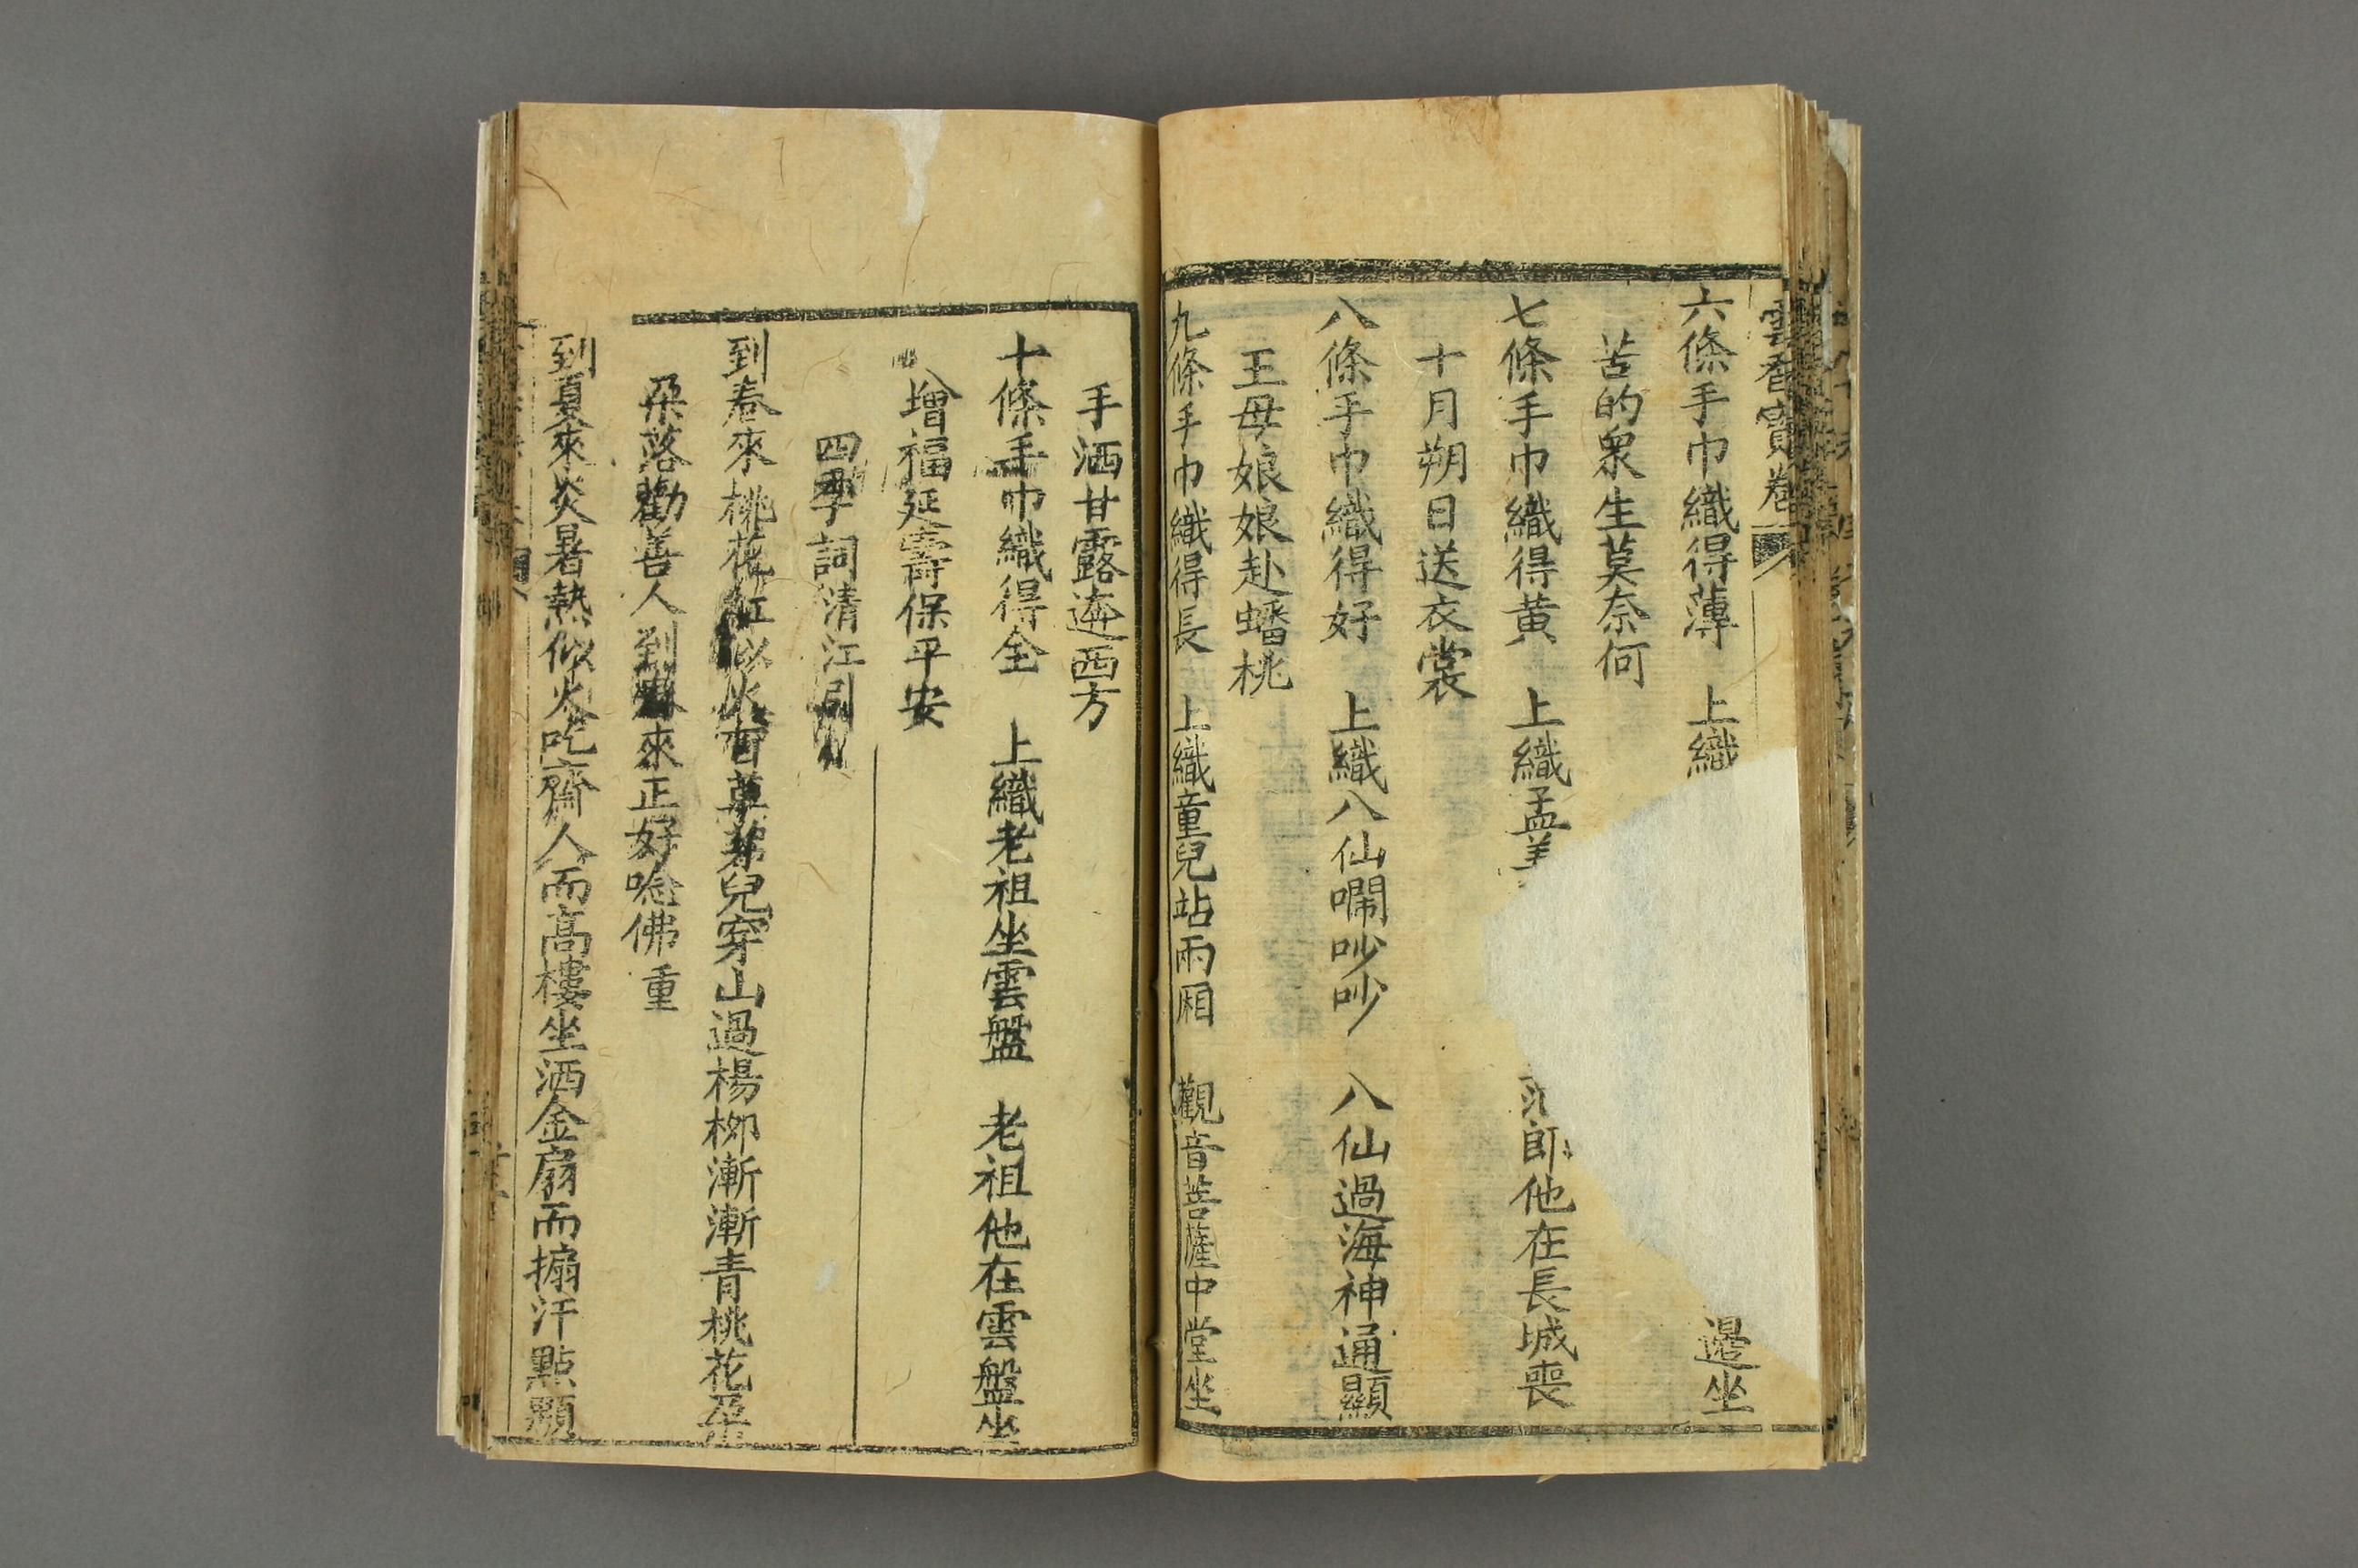 雲香寳卷
六條手巾織得薄 上織 邉坐
苦的衆生莫奈何
七條手巾織得黄 上織孟 郎他在長城喪
十月朔日送衣裳
八條手巾織得好 上織八仙鬧吵吵 八仙過海神通顯
王母娘娘赴蟠桃
九條手巾織得長 上織童兒站兩厢 觀音菩薩中堂坐
手洒甘露遊西方
十條手巾織得全 上織老祖坐雲盤 老祖他在雲盤坐
增福延壽保平安
四季詞清江引
到春來桃花紅似火百草芽兒穿山過楊栁漸漸青桃花朶
朶落勸善人到春來正好唸佛重
到夏來炎暑熱似火吃齋人而高樓坐洒金扇而搧汗點顆